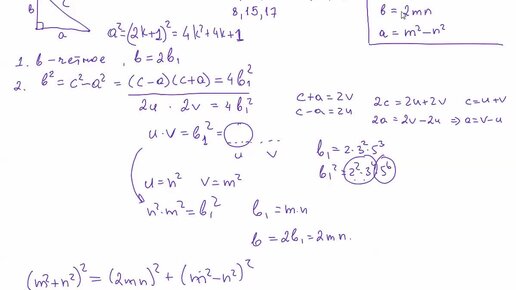 8, 15, 17
в c
a
a² = (2k+1)² = 4k² + 4k + 1
в = 2mn
a = m² - n²
1. в - четное, в = 2в₁
2. в² = c² - a² = (c-a)(c+a) = 4в₁²
2u · 2v = 4в₁²
c + a = 2v
c - a = 2u
2c = 2u + 2v c = u + v
2a = 2v - 2u ⇒ a = v - u
u · v = в₁² = ...
u v
в₁ = 2 · 3² · 5³
в₁² = 2² · 3⁴ 5⁶
u = n² v = m²
n² · m² = в₁² в₁ = m · n
в = 2в₁ = 2mn.
(m² + n²)² = (2mn)² + (m² - n²)²